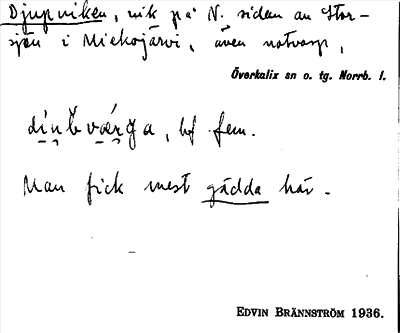 Djupviken, vik på N. sidan av Stor-
sjön i Miekojärvi, även notvarp,
Överkalix sn o. tg. Norrb. l.
bf. fem.
Man fick mest gädda här.
EDVIN BRÄNNSTRÖM 1936.